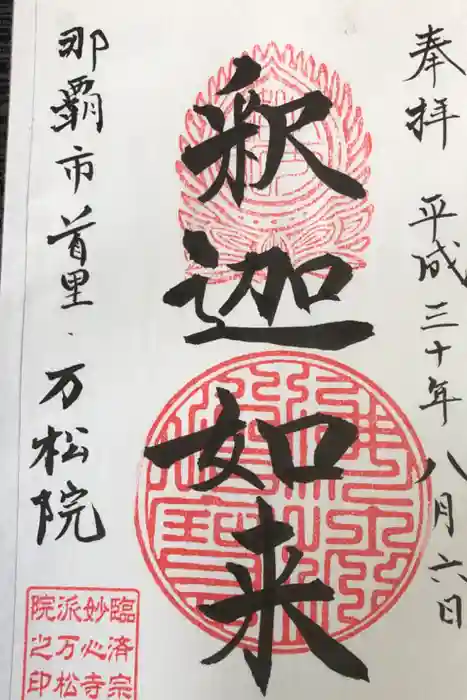 奉拝 平成三十年八月六日
釈迦如来
那覇市首里・万松院
臨済宗
妙心寺
派万松
院之印